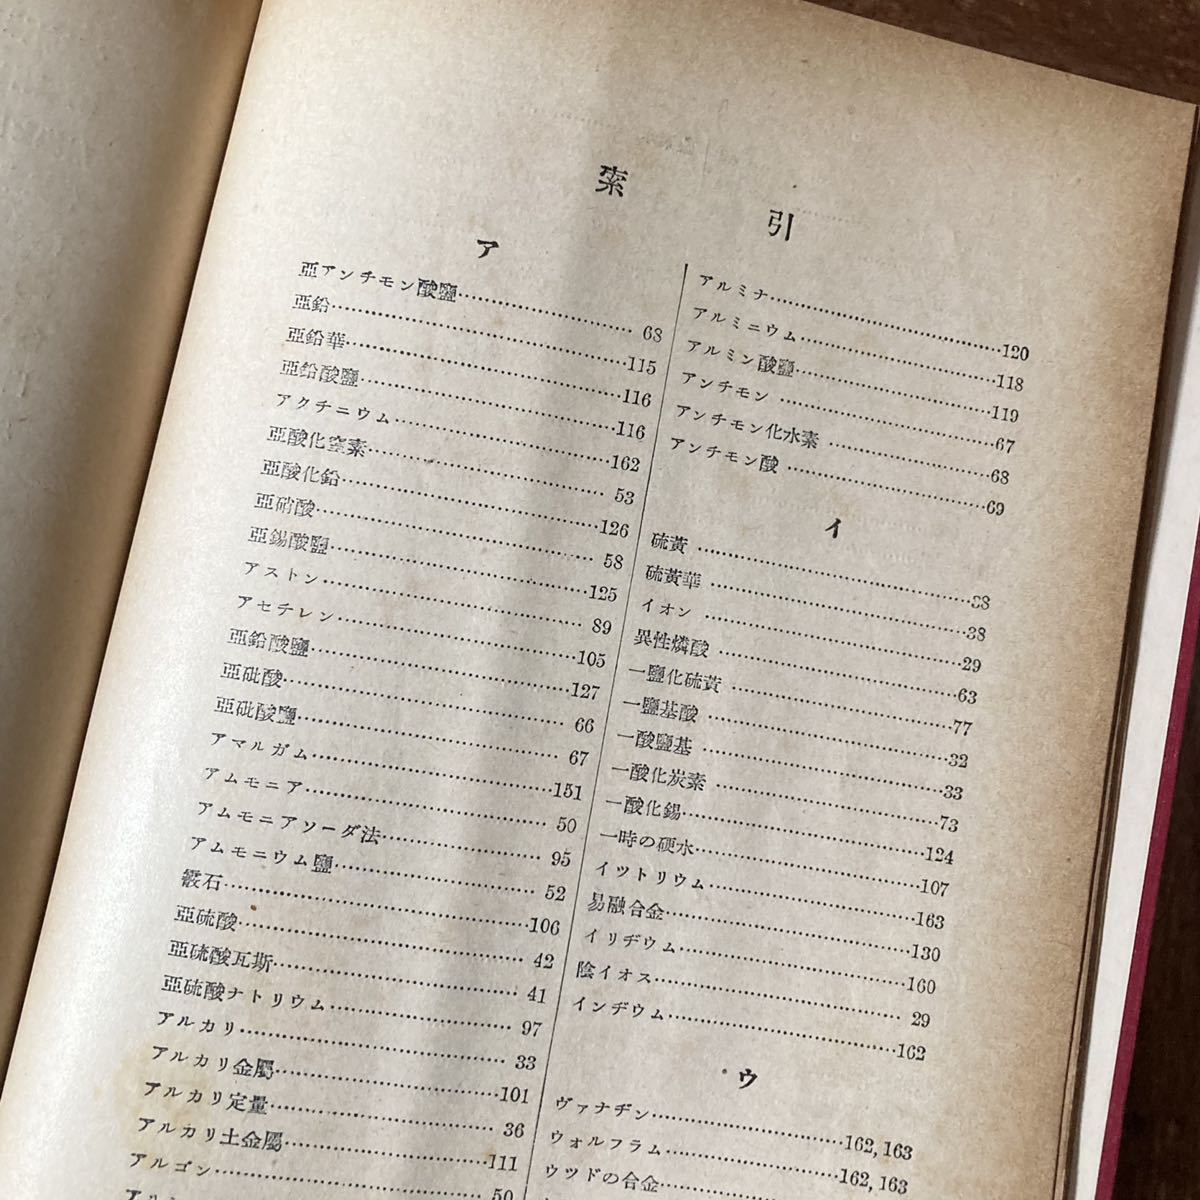 索引
ア
亞アンチモン酸鹽 68
亞鉛 115
亞鉛華 116
亞鉛酸鹽 116
アクチニウム 162
亞酸化窒素 53
亞酸化鉛 126
亞硝酸 58
亞錫酸鹽 125
アストン 89
アセチレン 105
亞鉛酸鹽 127
亞砒酸 66
亞砒酸鹽 67
アマルガム 151
アムモニア 50
アムモニアソーダ法 95
アムモニウム鹽 52
霰石 106
亞硫酸 42
亞硫酸瓦斯 41
亞硫酸ナトリウム 97
アルカリ 33
アルカリ金屬 101
アルカリ定量 36
アルカリ土金屬 111
アルゴン 50
アルミナ 120
アルミニウム 118
アルミン酸鹽 119
アンチモン 67
アンチモン化水素 68
アンチモン酸 69
イ
硫黃 38
硫黃華 38
イオン 29
異性燐酸 63
一鹽化硫黃 77
一鹽基酸 32
一酸鹽基 33
一酸化炭素 73
一酸化錫 124
一時の硬水 107
イツトリウム 163
易融合金 130
イリヂウム 160
陰イオス 29
インヂウム 162
ウ
ヴァナヂン 162,163
ウォルフラム 162,163
ウツドの合金